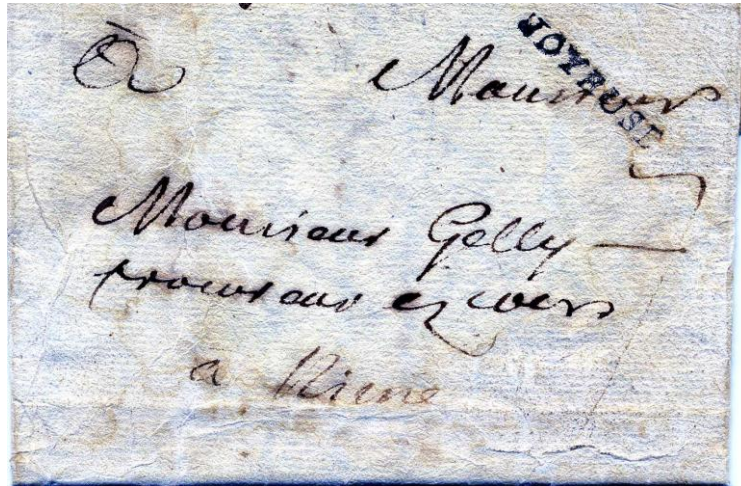 JOYEUSE
A Monsieur
Monsieur Gelly
procureur ez cours
a Nime